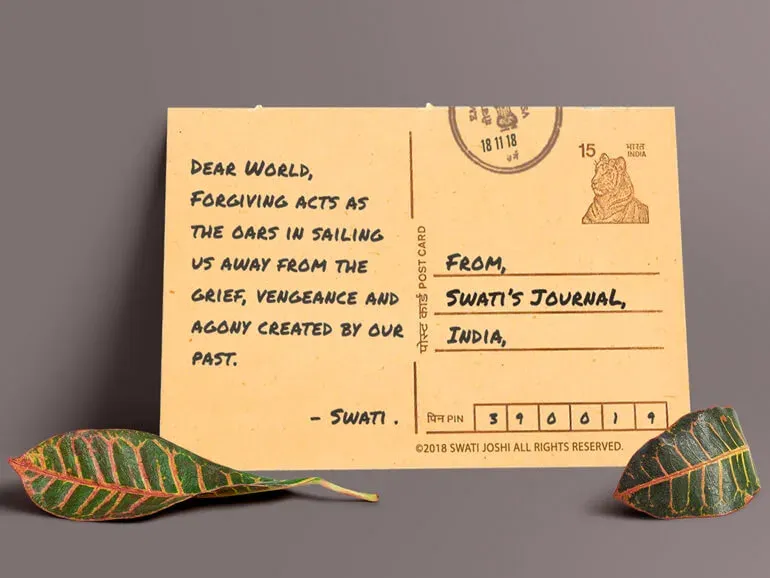 DEAR WORLD,
FORGIVING ACTS AS
THE OARS IN SAILING
US AWAY FROM THE
GRIEF, VENGEANCE AND
AGONY CREATED BY OUR
PAST.
- SWATI .
18 11 18
15 भारत
INDIA
पोस्ट कार्ड POST CARD
FROM,
SWATI'S JOURNAL,
INDIA,
पिन PIN 3 9 0 0 1 9
©2018 SWATI JOSHI ALL RIGHTS RESERVED.